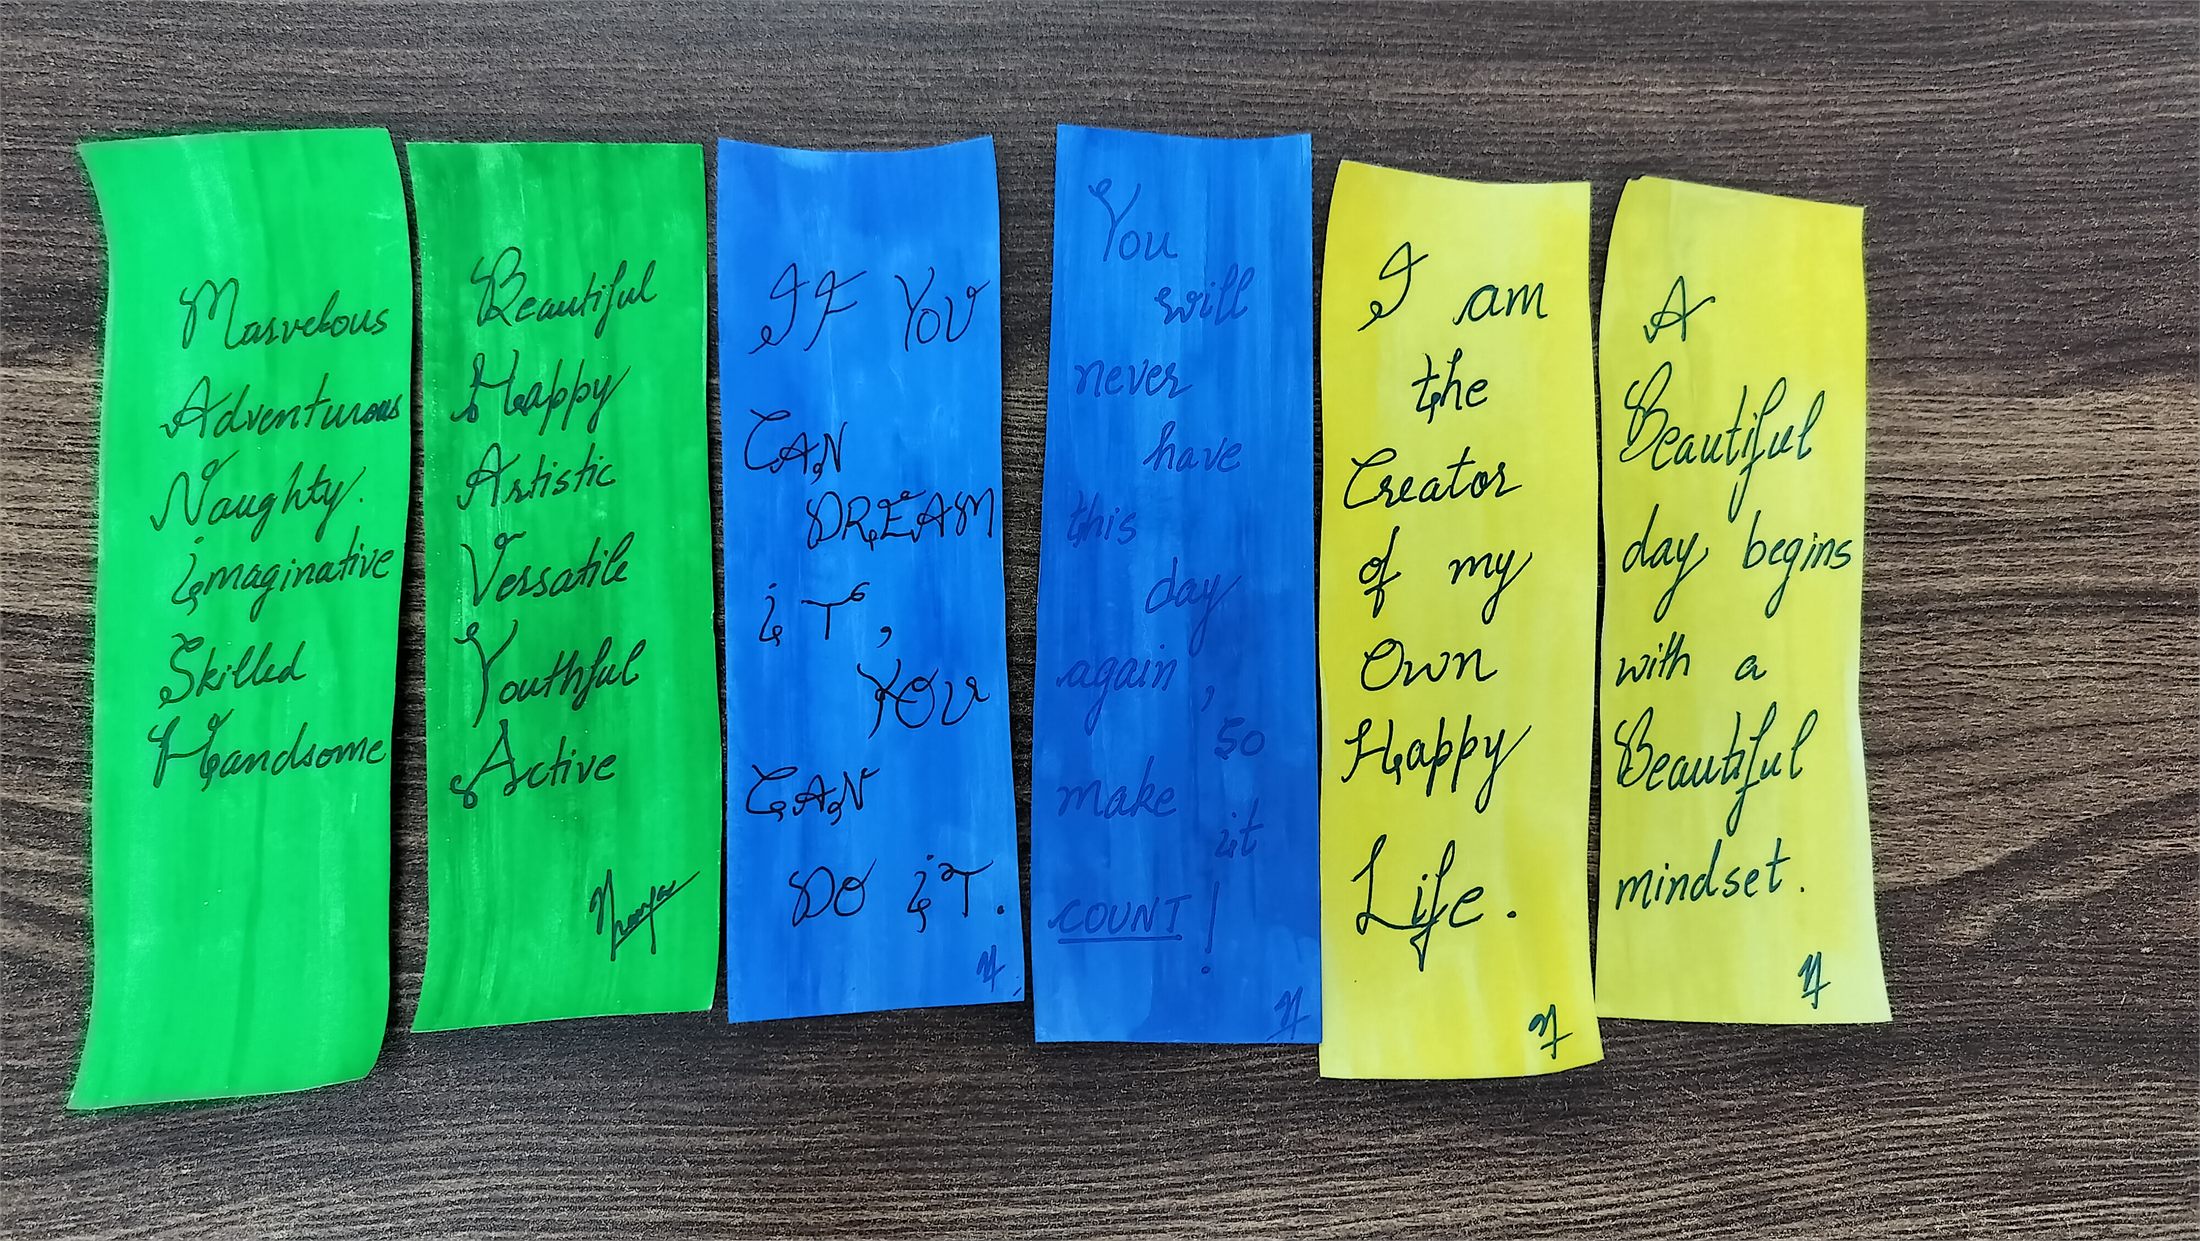 Marvelous
Adventurous
Naughty.
imaginative
Skilled
Handsome
Beautiful
Happy
Artistic
Versatile
Youthful
Active
IF YOU
CAN
DREAM
iT,
YOU
CAN
DO iT.
You
will
never
have
this
day
again,
so
make
it
COUNT!
I am
the
Creator
of my
Own
Happy
Life.
A
Beautiful
day begins
with a
Beautiful
mindset.